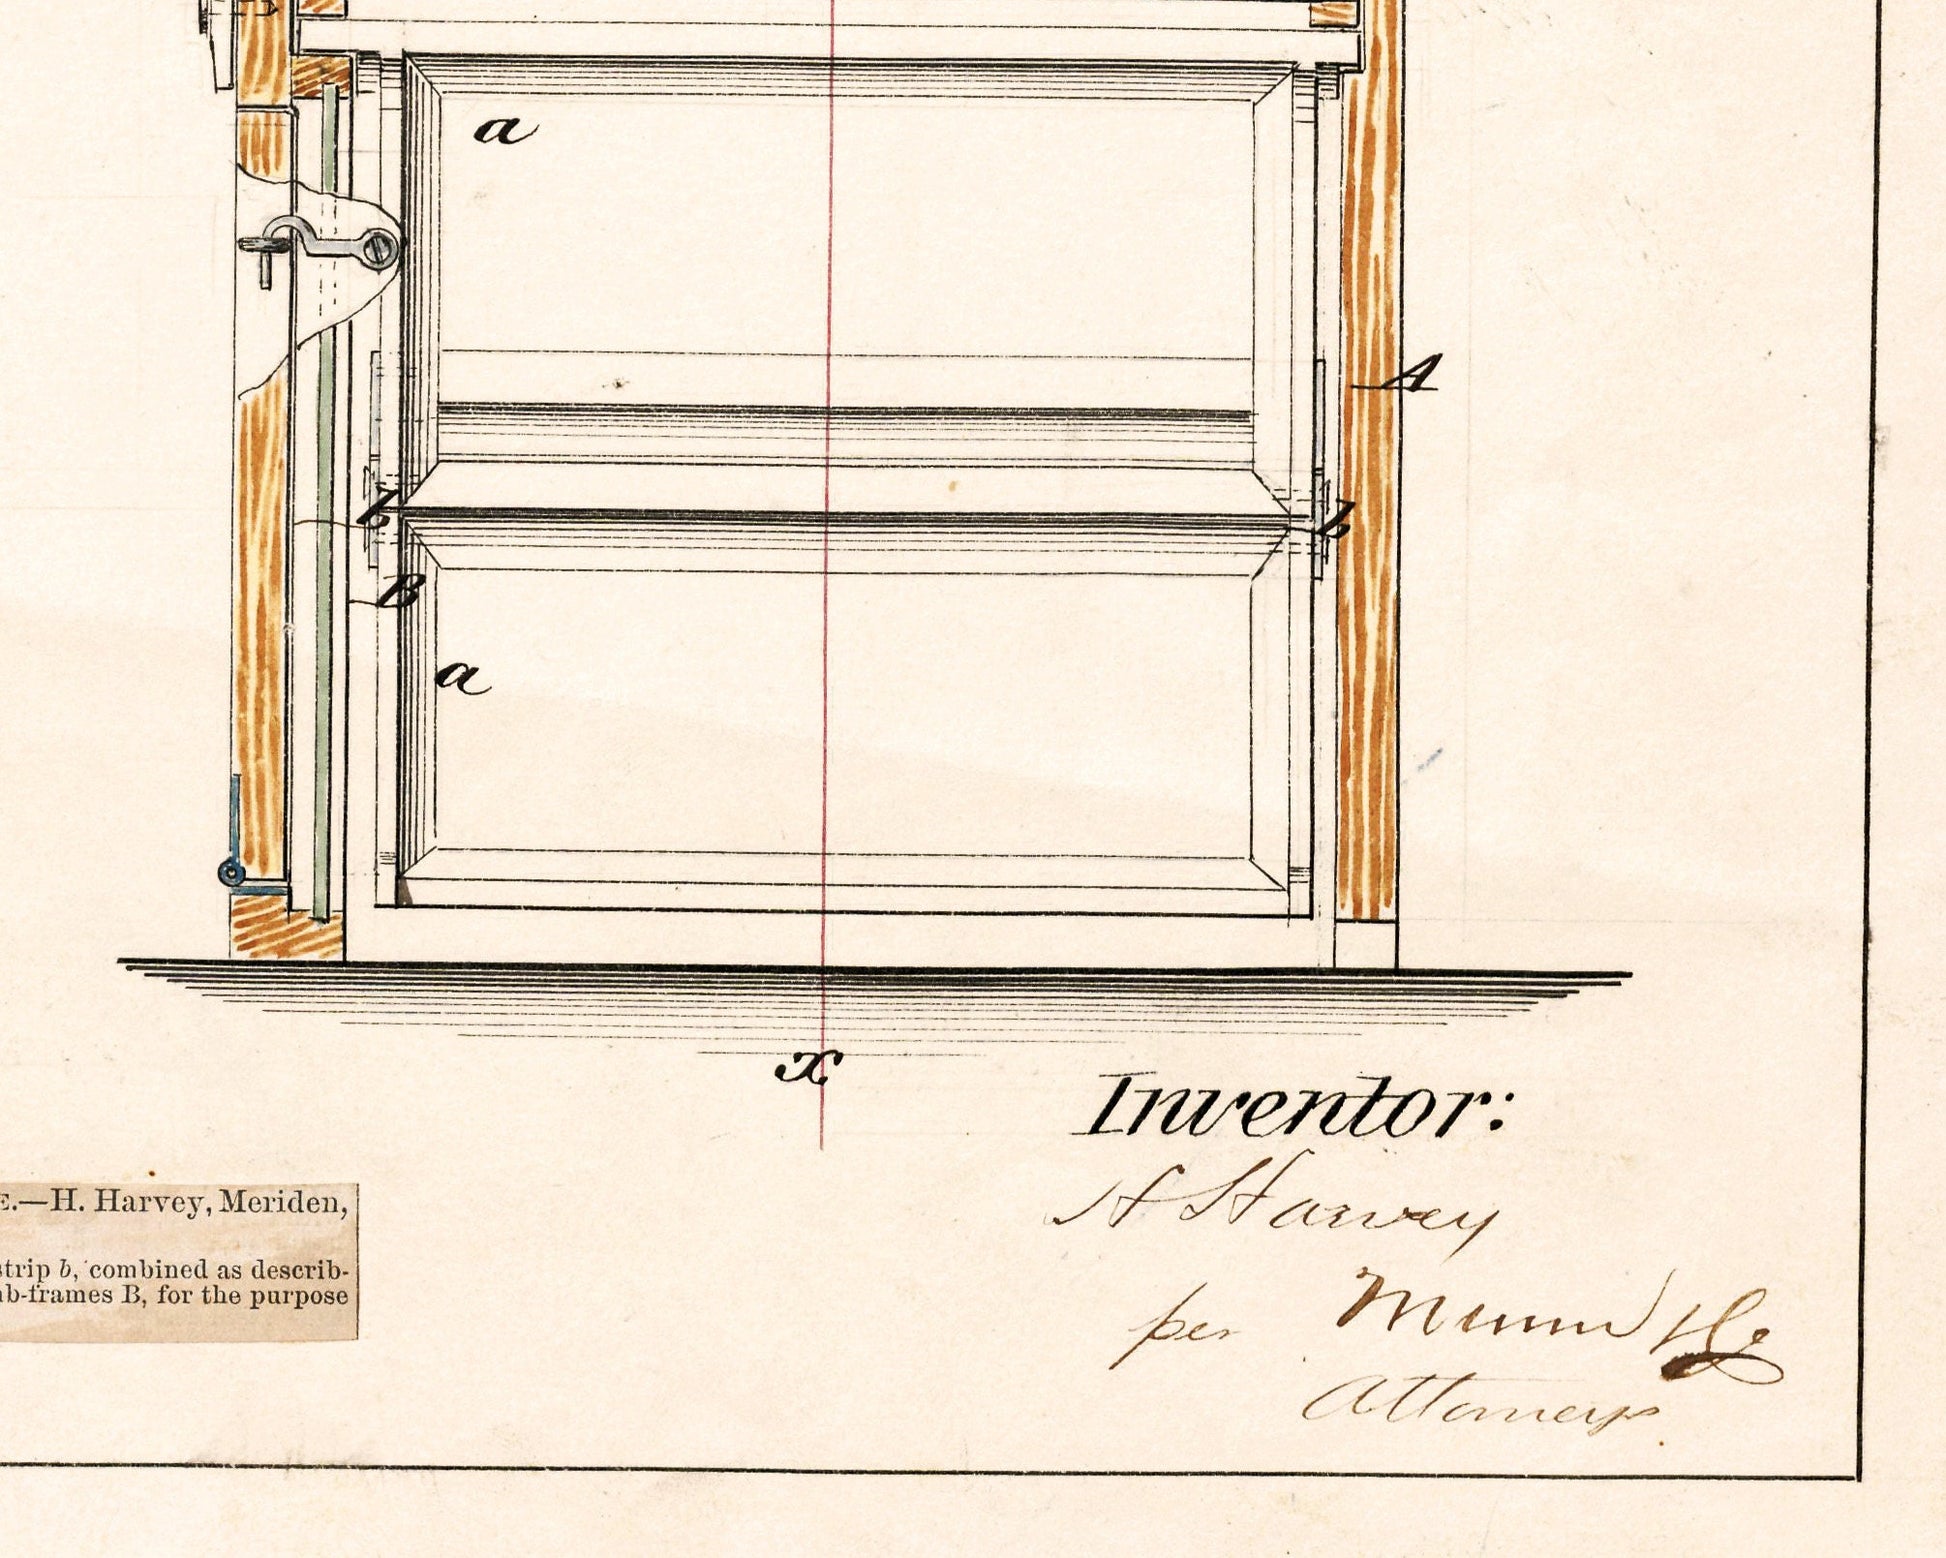 a
A
b
b
B
a
x
Inventor:
H Harvey
per Munn & Co
Attorneys
E.—H. Harvey, Meriden,
strip b, combined as describ-
ub-frames B, for the purpose